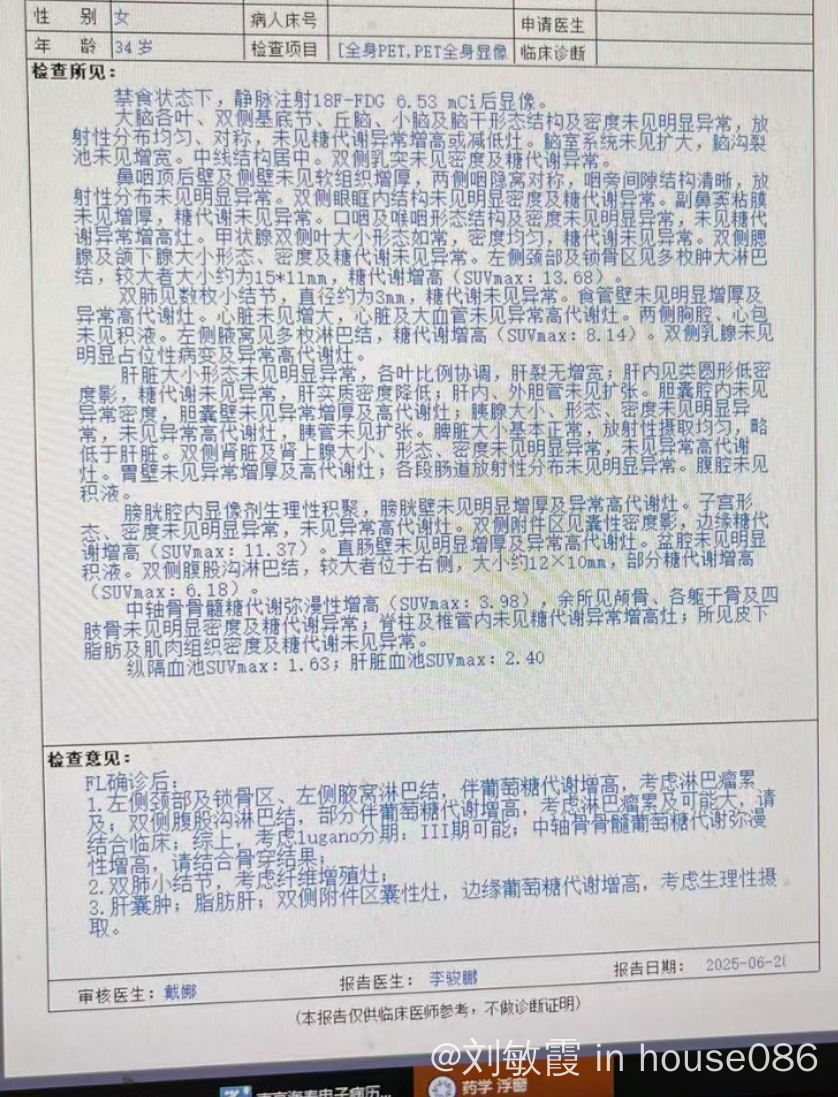 性 别 女 病人床号 申请医生
年 龄 34 岁 检查项目 [全身PET,PET全身显像 临床诊断
检查所见：
禁食状态下，静脉注射18F-FDG 6.53 mCi后显像。
大脑各叶、双侧基底节、丘脑、小脑及脑干形态结构及密度未见明显异常，放
射性分布均匀、对称，未见糖代谢异常增高或减低灶。脑室系统未见扩大，脑沟裂
池未见增宽。中线结构居中。双侧乳突未见密度及糖代谢异常。
鼻咽顶后壁及侧壁未见软组织增厚，两侧咽隐窝对称，咽旁间隙结构清晰，放
射性分布未见明显异常。双侧眼眶内结构未见明显密度及糖代谢异常。副鼻窦粘膜
未见增厚，糖代谢未见异常。口咽及喉咽形态结构及密度未见明显异常，未见糖代
谢异常增高灶。甲状腺双侧叶大小形态如常，密度均匀，糖代谢未见异常。双侧腮
腺及颌下腺大小形态、密度及糖代谢未见异常。左侧颈部及锁骨区见多枚肿大淋巴
结，较大者大小约为15*11mm，糖代谢增高（SUVmax：13.68）。
双肺见数枚小结节，直径约为3mm，糖代谢未见异常。食管壁未见明显增厚及
异常高代谢灶。心脏未见增大，心脏及大血管未见异常高代谢灶。两侧胸腔、心包
未见积液。左侧腋窝见多枚淋巴结，糖代谢增高（SUVmax：8.14）。双侧乳腺未见
明显占位性病变及异常高代谢灶。
肝脏大小形态未见明显异常，各叶比例协调，肝裂无增宽；肝内见类圆形低密
度影，糖代谢未见异常，肝实质密度降低；肝内、外胆管未见扩张。胆囊腔内未见
异常密度，胆囊壁未见异常增厚及高代谢灶；胰腺大小、形态、密度未见明显异
常，未见异常高代谢灶，胰管未见扩张。脾脏大小基本正常，放射性摄取均匀，略
低于肝脏。双侧肾脏及肾上腺大小、形态、密度未见明显异常，未见异常高代谢
灶。胃壁未见异常增厚及高代谢灶；各段肠道放射性分布未见明显异常。腹腔未见
积液。
膀胱腔内显像剂生理性积聚，膀胱壁未见明显增厚及异常高代谢灶。子宫形
态、密度未见明显异常，未见异常高代谢灶。双侧附件区见囊性密度影，边缘糖代
谢增高（SUVmax：11.37）。直肠壁未见明显增厚及异常高代谢灶。盆腔未见明显
积液。双侧腹股沟淋巴结，较大者位于右侧，大小约12×10mm，部分糖代谢增高
（SUVmax：6.18）。
中轴骨骨髓糖代谢弥漫性增高（SUVmax：3.98），余所见颅骨、各躯干骨及四
肢骨未见明显密度及糖代谢异常；脊柱及椎管内未见糖代谢异常增高灶；所见皮下
脂肪及肌肉组织密度及糖代谢未见异常。
纵隔血池SUVmax：1.63；肝脏血池SUVmax：2.40
检查意见：
FL确诊后：
1.左侧颈部及锁骨区、左侧腋窝淋巴结，伴葡萄糖代谢增高，考虑淋巴瘤累
及；双侧腹股沟淋巴结，部分伴葡萄糖代谢增高，考虑淋巴瘤累及可能大，请
结合临床；综上，考虑lugano分期：III期可能；中轴骨骨髓葡萄糖代谢弥漫
性增高，请结合骨穿结果；
2.双肺小结节，考虑纤维增殖灶；
3.肝囊肿；脂肪肝；双侧附件区囊性灶，边缘葡萄糖代谢增高，考虑生理性摄
取。
审核医生：戴娜 报告医生：李骏鹏 报告日期：2025-06-2
(本报告仅供临床医师参考，不做诊断证明)
@刘敏霞 in house086
电子病历... 药学 浮窗